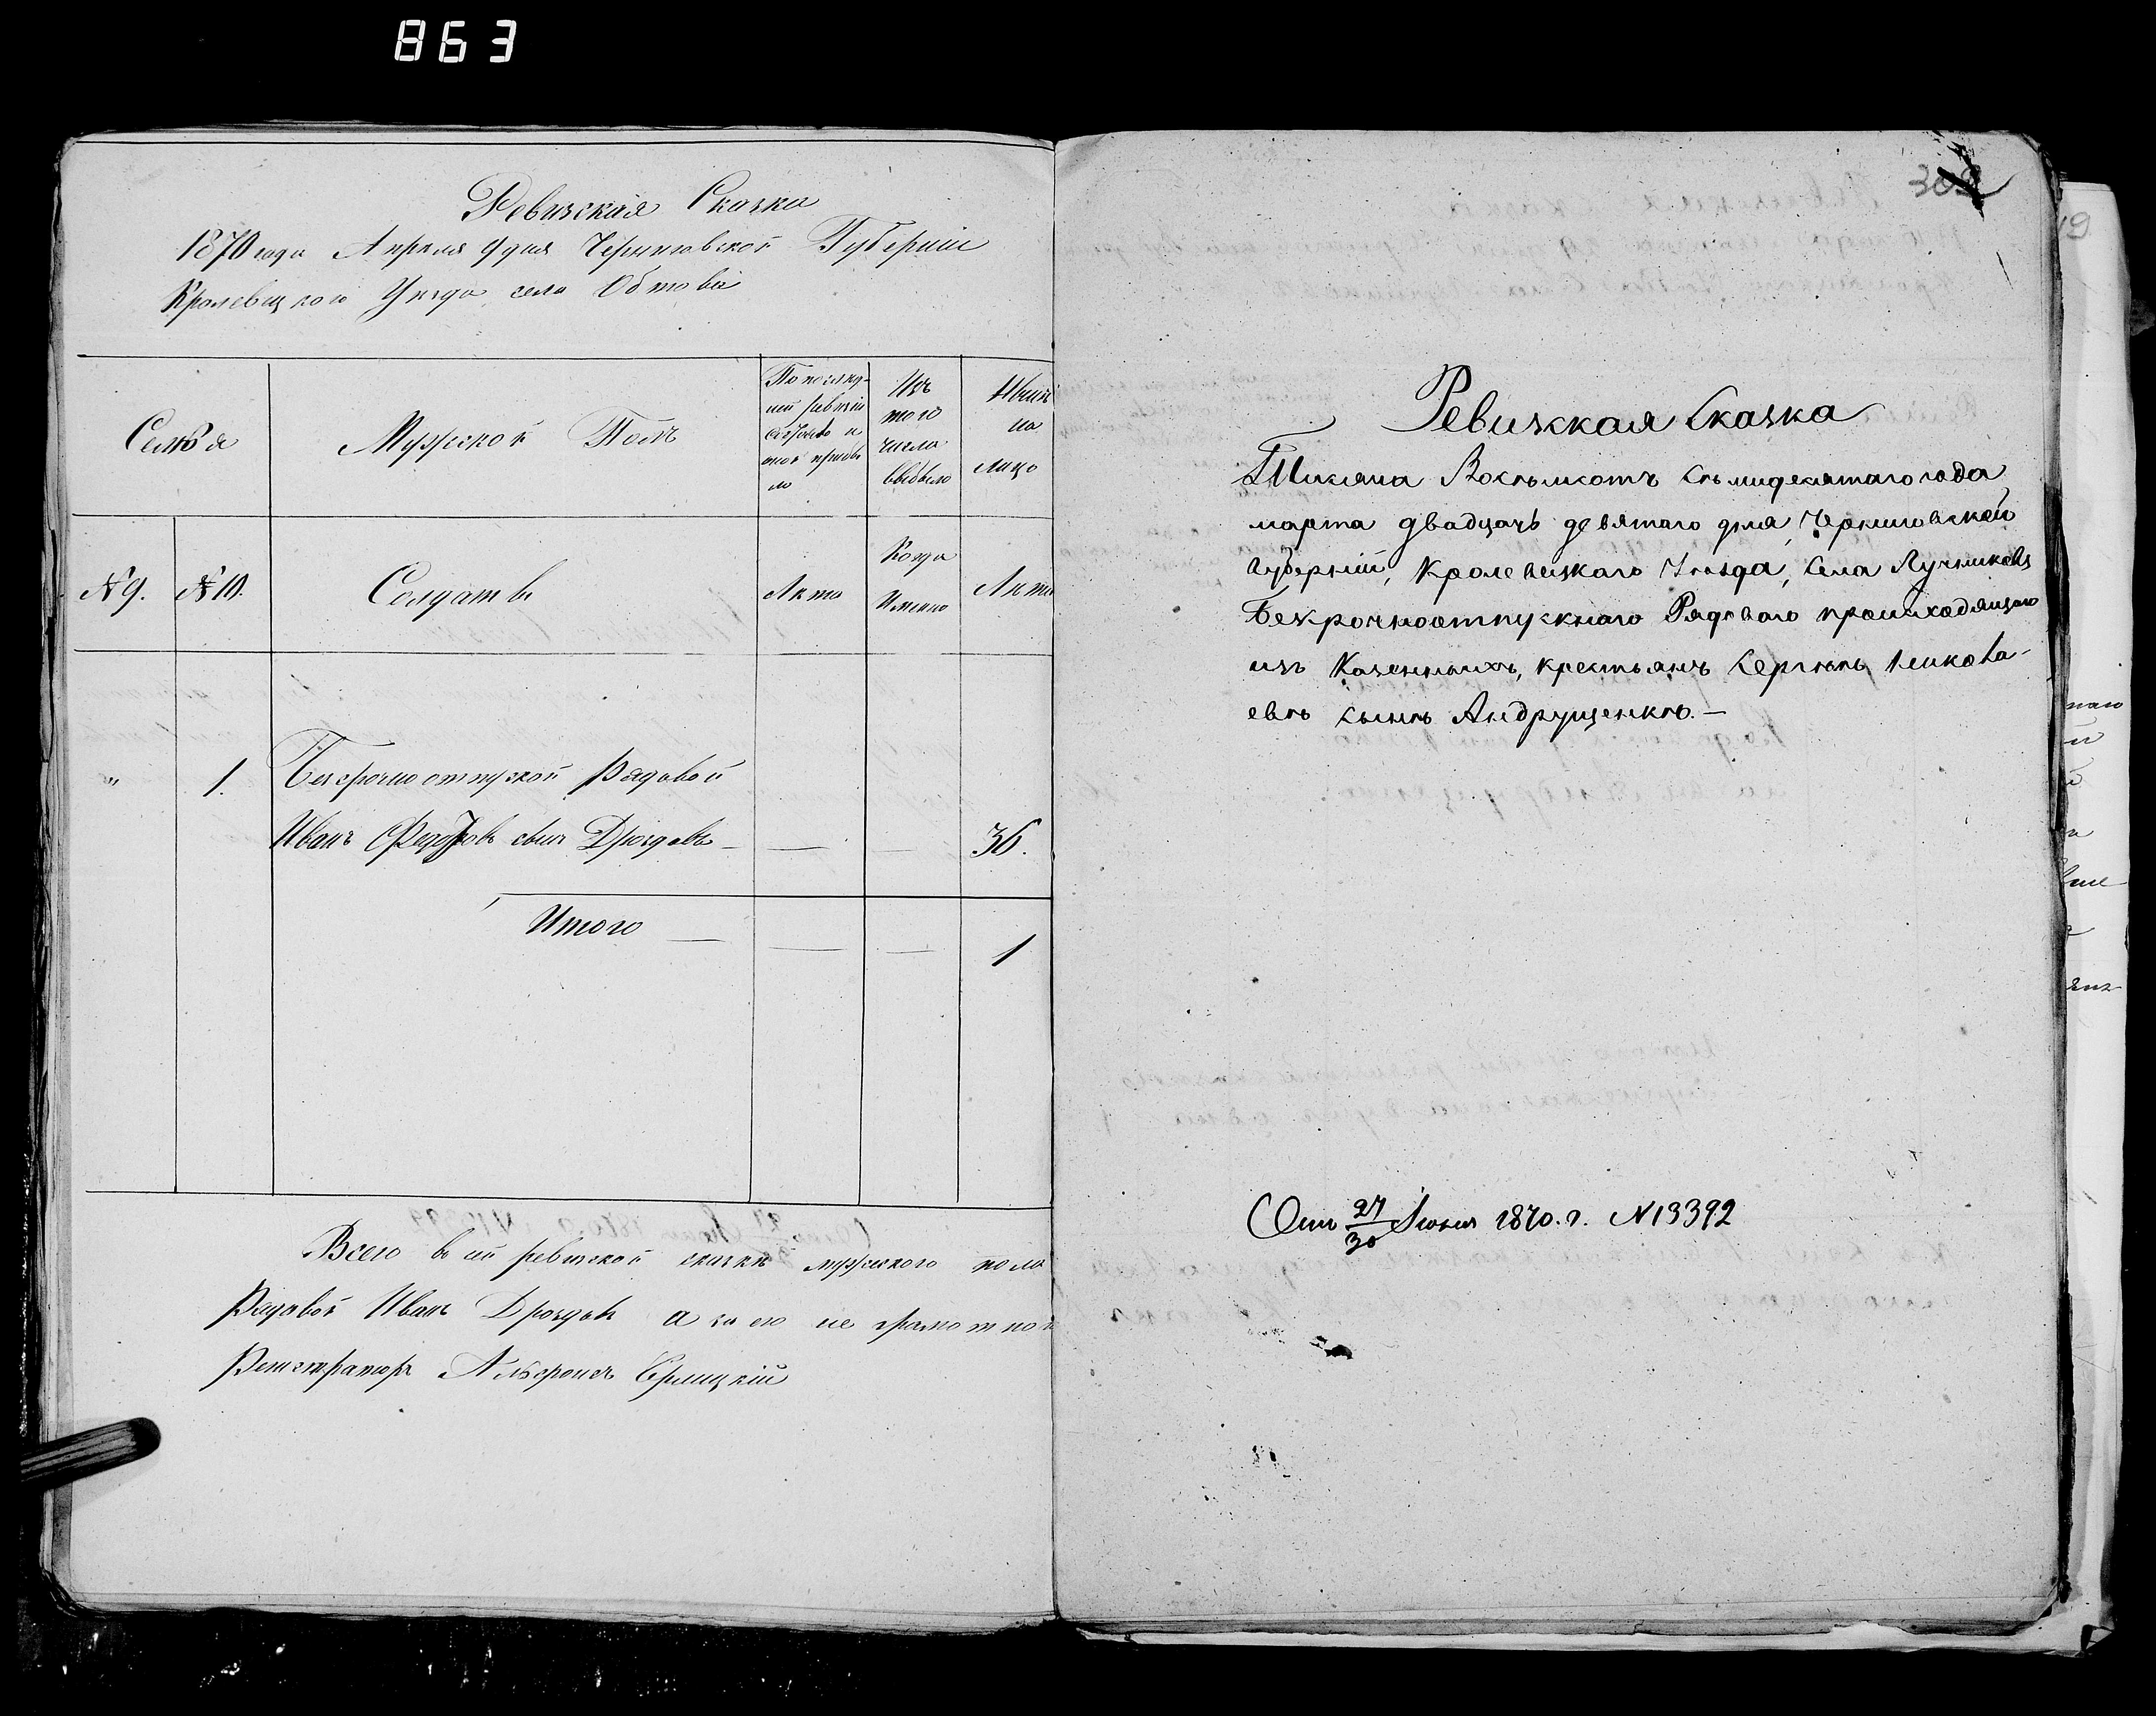 863
Ревизская Сказка
1870 года Апреля 9 дня Черниговской Губерніи
Кролевецкого Уезда села Обтова
Семья
Мужской Полъ
По послед-
ней ревизіи
состояло и
после прибы
ло
Изъ
того
числа
выбыло
Ныне
на
лицо
№ 9.
№ 10.
Солдаты
Лета
Когда
Именно
Лета
"
1.
Безсрочно отпускной Рядовой
Иванъ Федоровъ сынъ Дроздовъ — — — 36.
Итого — — — 1
Всего въ ей ревизской сказке мужского пола
Рядовой Иванъ Дроздовъ а за его не грамотной
Регистраторъ
309
Ревизкая Сказка
Тысяча Восемьсотъ семидесятаго года,
марта двадцать девятаго дня, Черниговской
Губерніи, Кролевецкаго Уезда, Села Лучниковъ
Безсрочноотпускнаго Рядоваго происходящаго
изъ Казенныхъ, крестьянъ Сергей Никола-
евъ сынъ Андрущенко. —
От 27/30 Іюня 1870. г. № 13392